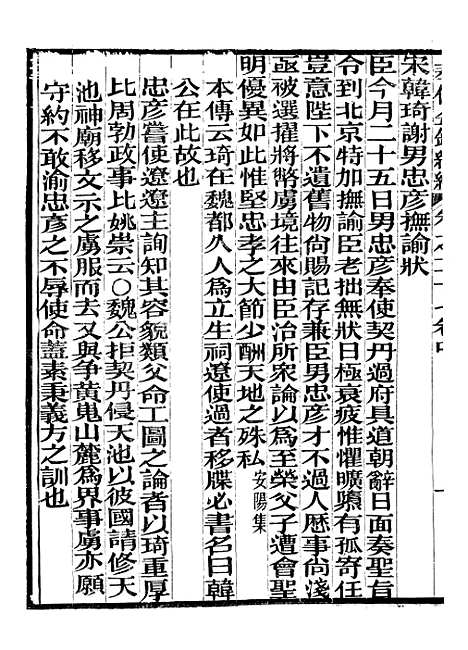 宋韓琦謝男忠彥撫諭狀
臣今月二十五日男忠彥奉使契丹過府具道朝辭日面奏聖旨
令到北京特加撫諭臣老拙無狀日極衰疲惟懼曠隳有孤寄任
豈意陛下不遺舊物尙賜記存兼臣男忠彥才不過人歷事尙淺
亟被選擢將幣虜境往來由臣治所衆論以爲至榮父子遭會聖
明優異如此惟堅忠孝之大節少酬天地之殊私安陽集
本傳云琦在魏都久人爲立生祠遼使過者移牒必書名曰韓
公在此故也
忠彥嘗使遼遼主詢知其容貌類父命工圖之論者以琦重厚
比周勃政事比姚崇云○魏公拒契丹侵天池以彼國請修天
池神廟移文示之虜服而去又與爭黃嵬山麓爲界事虜亦願
守約不敢渝忠彥之不辱使命蓋素秉義方之訓也